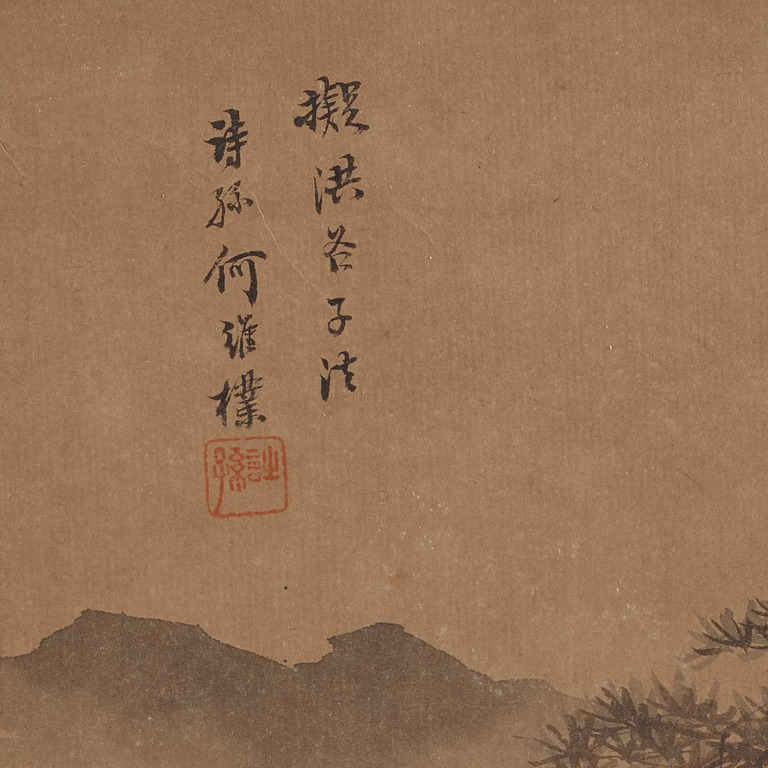 擬洪谷子法
詩孫何維樸
詩孫